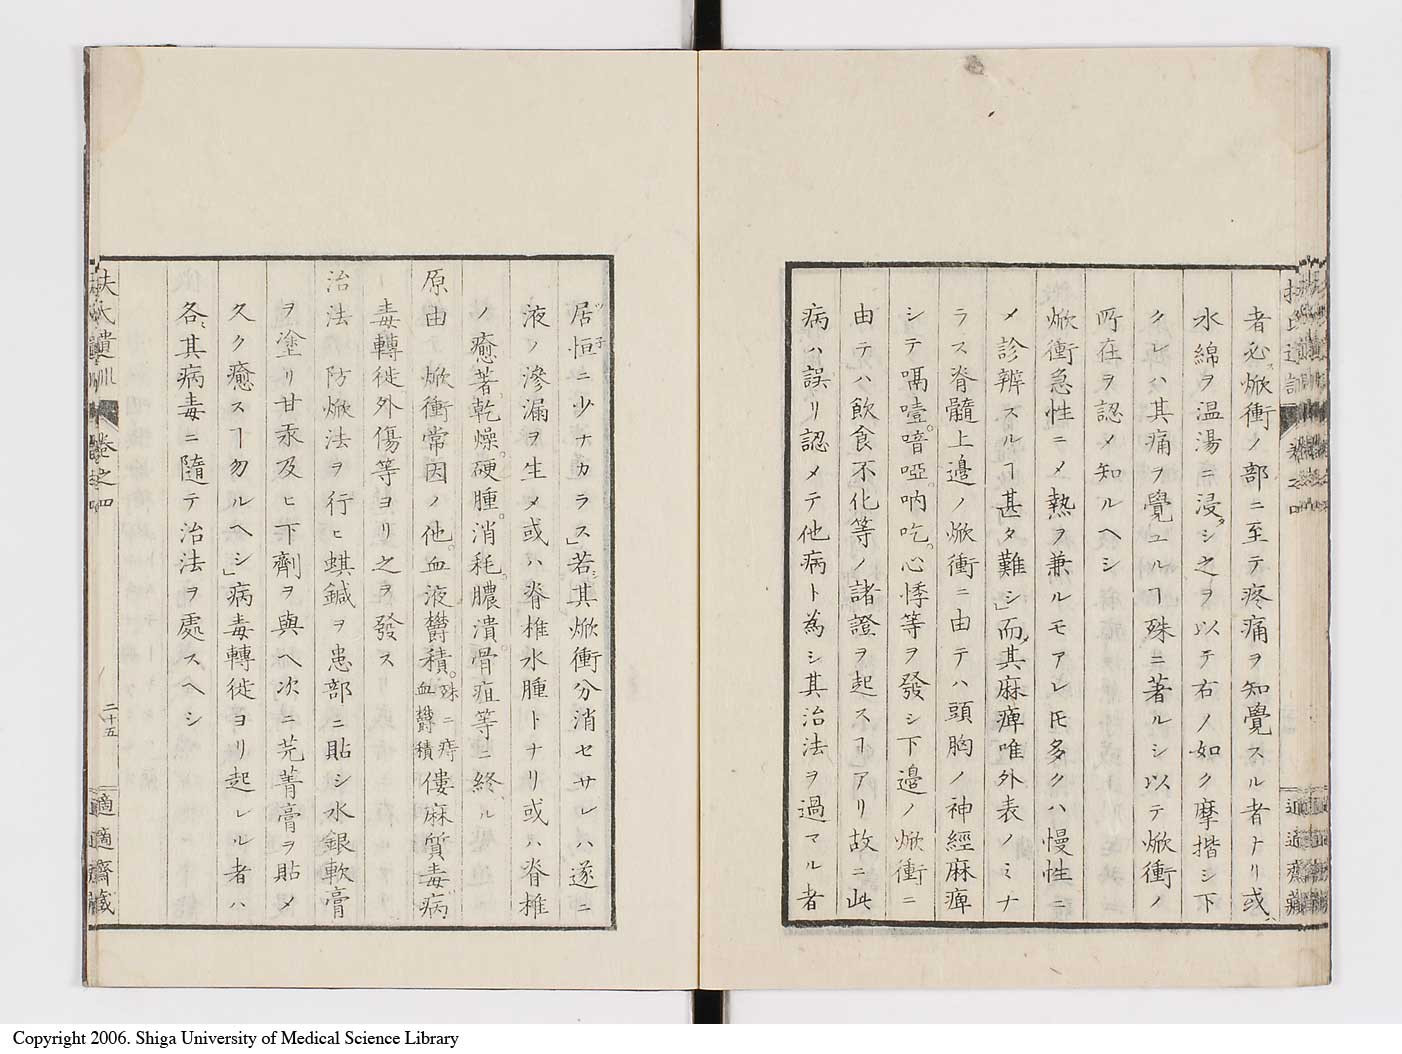 者必ス焮衝ノ部ニ至テ疼痛ヲ知覺スル者ナリ或ハ
水綿ヲ温湯ニ浸シ之ヲ以テ右ノ如ク摩揩シ下
クレハ其痛ヲ覺ユルヿ殊ニ著ルシ以テ焮衝ノ
所在ヲ認メ知ルヘシ
焮衝急性ニメ熱ヲ兼ルモアレ𪜈多クハ慢性ニ
メ診辨スルヿ甚タ難シ」而其麻痺唯外表ノミナ
ラス脊髓上邊ノ焮衝ニ由テハ頭胸ノ神經麻痺
シテ喎噎。喑啞。吶吃。心悸等ヲ發シ下邊ノ焮衝ニ
由テハ飲食不化等ノ諸證ヲ起スヿアリ故ニ此
病ハ誤リ認メテ他病ト為シ其治法ヲ過マル者
居恒ニ少ナカラス」若シ其焮衝分消セサレハ遂ニ
液ノ滲漏ヲ生メ或ハ脊椎水腫トナリ或ハ脊椎
ノ癒著。乾燥。硬腫。消耗。膿潰。骨疽等ニ終ル
原由 焮衝常因ノ他。血液鬱積。殊ニ痔血鬱積 僂麻質毒。病
毒轉徙外傷等ヨリ之ヲ發ス
治法 防焮法ヲ行ヒ蜞鍼ヲ患部ニ貼シ水銀軟膏
ヲ塗リ甘汞及ヒ下劑ヲ與ヘ次ニ芫菁膏ヲ貼メ
久ク癒スヿ勿ルヘシ」病毒轉徙ヨリ起レル者ハ
各其病毒ニ隨テ治法ヲ處スヘシ
扶氏遺訓 卷之四
二十五
適適齋藏
Copyright 2006. Shiga University of Medical Science Library